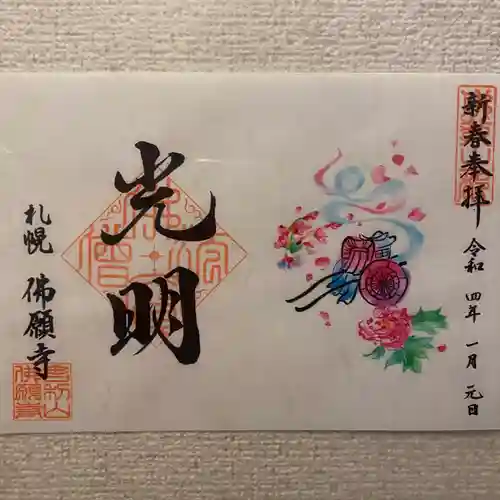 新春奉拝
令和 四年 一月 元日
光明
札幌 佛願寺